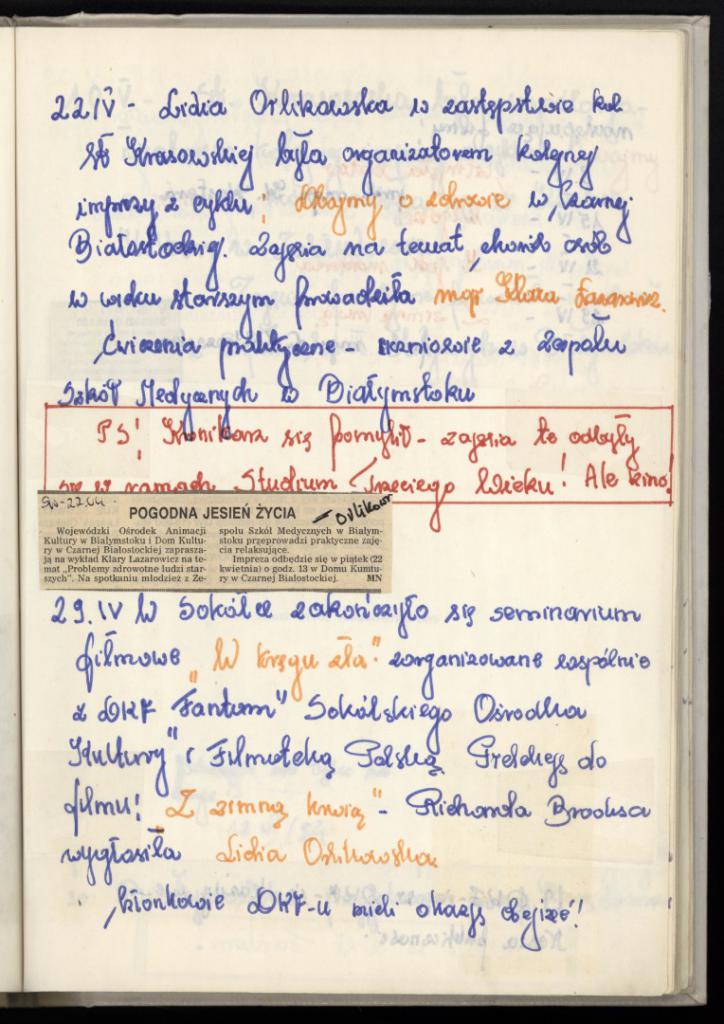 22 IV - Lidia Orlikowska w zastępstwie kol.
Krasowskiej była organizatorem kolejnej
imprezy z cyklu: Dbajmy o zdrowie w Czarnej
Białostockiej. Zajęcia na temat chorób osób
w wieku starszym prowadziła mgr Klara Lazarowicz.
Ćwiczenia praktyczne - uczniowie z Zespołu
Szkół Medycznych w Białymstoku
PS! Kronikarz się pomylił - zajęcia te odbyły
się w ramach Studium Trzeciego Wieku! Ale kino!
22.04. Orlikow
POGODNA JESIEŃ ŻYCIA
Wojewódzki Ośrodek Animacji
Kultury w Białymstoku i Dom Kultu-
ry w Czarnej Białostockiej zaprasza-
ją na wykład Klary Lazarowicz na te-
mat „Problemy zdrowotne ludzi star-
szych". Na spotkaniu młodzież z Ze-
społu Szkół Medycznych w Białym-
stoku przeprowadzi praktyczne zaję-
cia relaksujące.
Impreza odbędzie się w piątek (22
kwietnia) o godz. 13 w Domu Kumtu-
ry w Czarnej Białostockiej. MN
29.IV W Sokółce zakończyło się seminarium
filmowe „W kręgu zła" zorganizowane wspólnie
z DKF "Fantom" Sokólskiego Ośrodka
Kultury" i Filmoteką Polską. Prelekcję do
filmu! Z zimną krwią" - Richarda Brooksa
wygłosiła Lidia Orlikowska
Członkowie DKF-u mieli okazję obejrzeć!